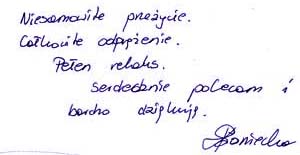 Niesamowite przeżycie.
Całkowite odprężenie.
Pełen relaks.
serdecznie polecam i
bardzo dziękuję.